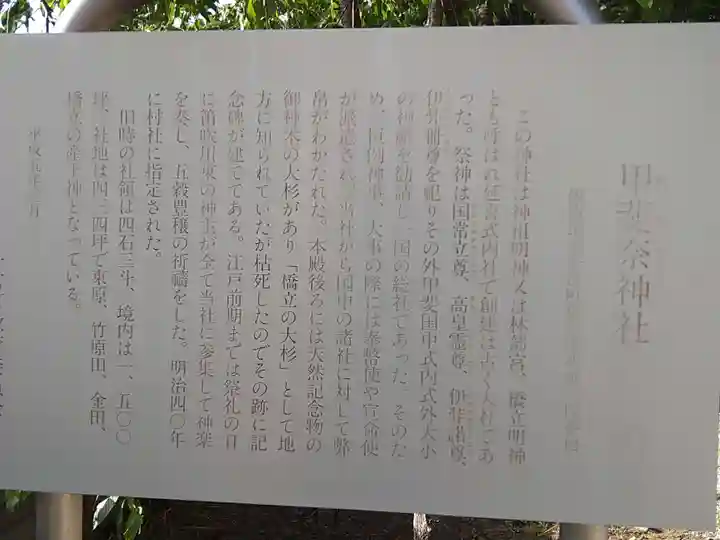 甲斐奈神社
この神社は神祖明神又は林部宮、橋立明神
とも呼ばれ延喜式内社で創建は古く大社であ
った。祭神は国常立尊、高皇霊尊、伊弉諾尊、
伊弉冊尊を祀りその外甲斐国中式内式外大小
の神祇を勧請し一国の総社であった。そのた
め、恒例神事、大事の際には奉幣使や宣命使
が派遣され、当社から国中の諸社に対して幣
帛がわかたれた。本殿後ろには天然記念物の
御神木の大杉があり「橋立の大杉」として地
方に知られていたが枯死したのでその跡に記
念碑が建ててある。江戸前期までは祭礼の日
に笛吹川東の神主が全て当社に参集して神楽
を奏し、五穀豊穣の祈禱をした。明治四〇年
に村社に指定された。
旧時の社領は四石三斗、境内は一、五〇〇
坪、社地は四三四坪で東原、竹原田、金田、
橋立の産土神となっている。